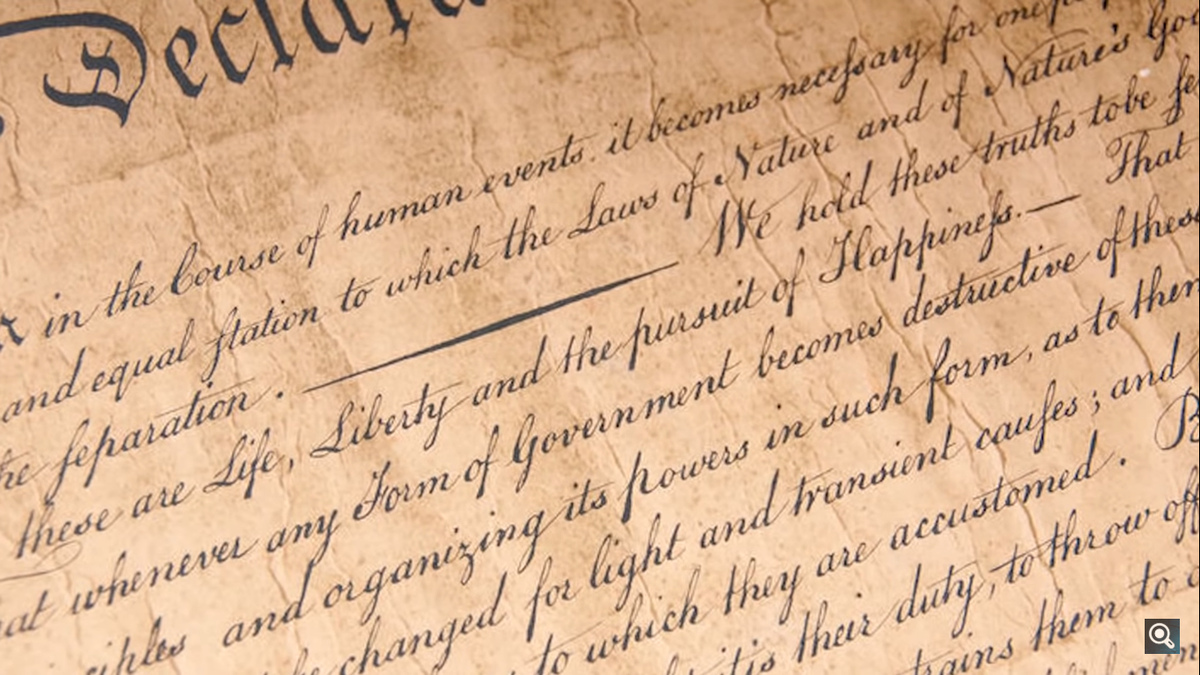 Declara
in the Course of human events. it becomes neceſsary for one
and equal ſtation to which the Laws of Nature and of Nature's God
he ſeparation. — We hold these truths tobe ſe
these are Life, Liberty and the pursuit of Happineſs. — That
at whenever any Form of Government becomes destructive of these
ciples and organizing its powers in such form, as to them
changed for light and transient cauſes; and
to which they are accustomed. B
it is their duty, to throw off
trains them to